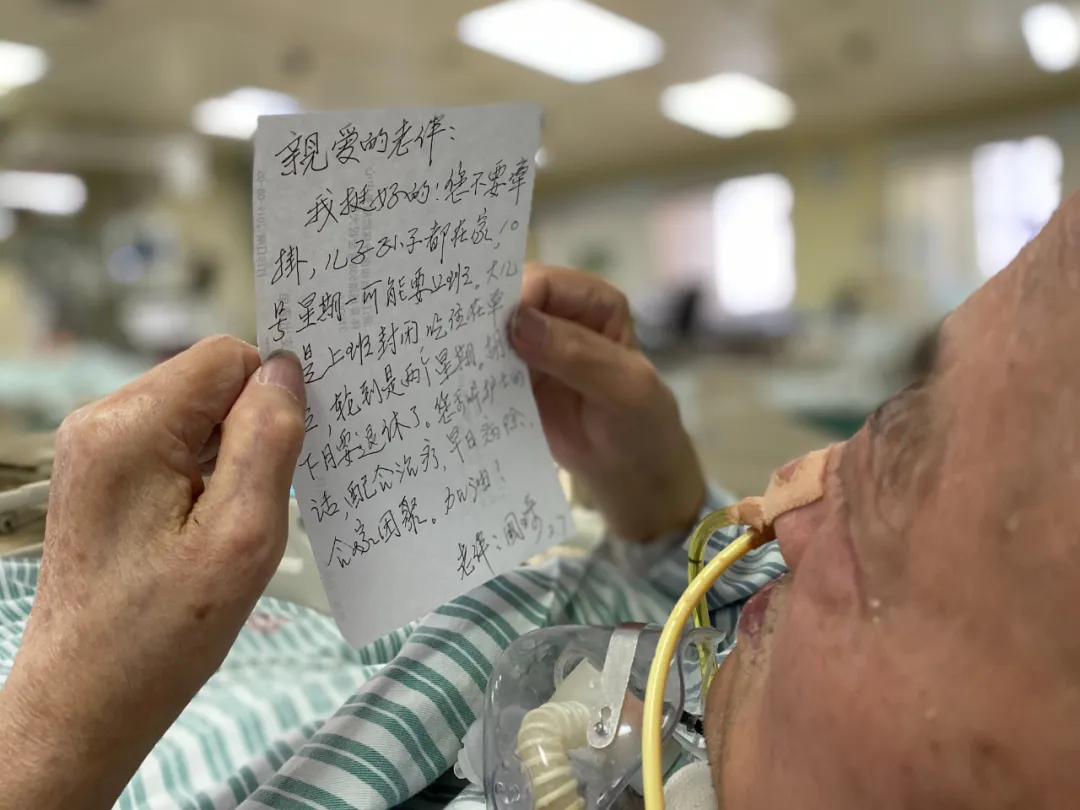 亲爱的老伴：
我挺好的！您不要牵
掛，儿子孙子都在家，10
号星期一可能要上班。大儿
是上班封闭吃住在单
，轮到是两个星期。
下月要退休了。您要听护士的
话，配合治疗，早日病除，
合家团聚。加油！
老伴：周 27